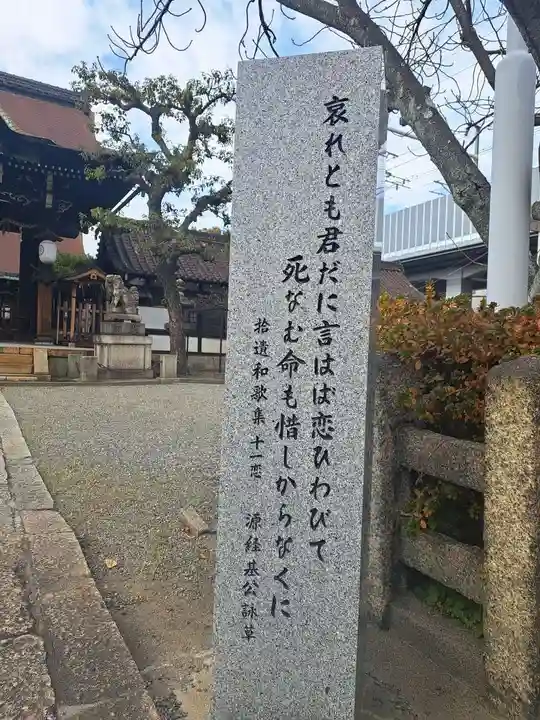 哀れとも君だに言はば恋ひわびて
死なむ命も惜しからなくに
拾遺和歌集 十一恋 源経基公詠草